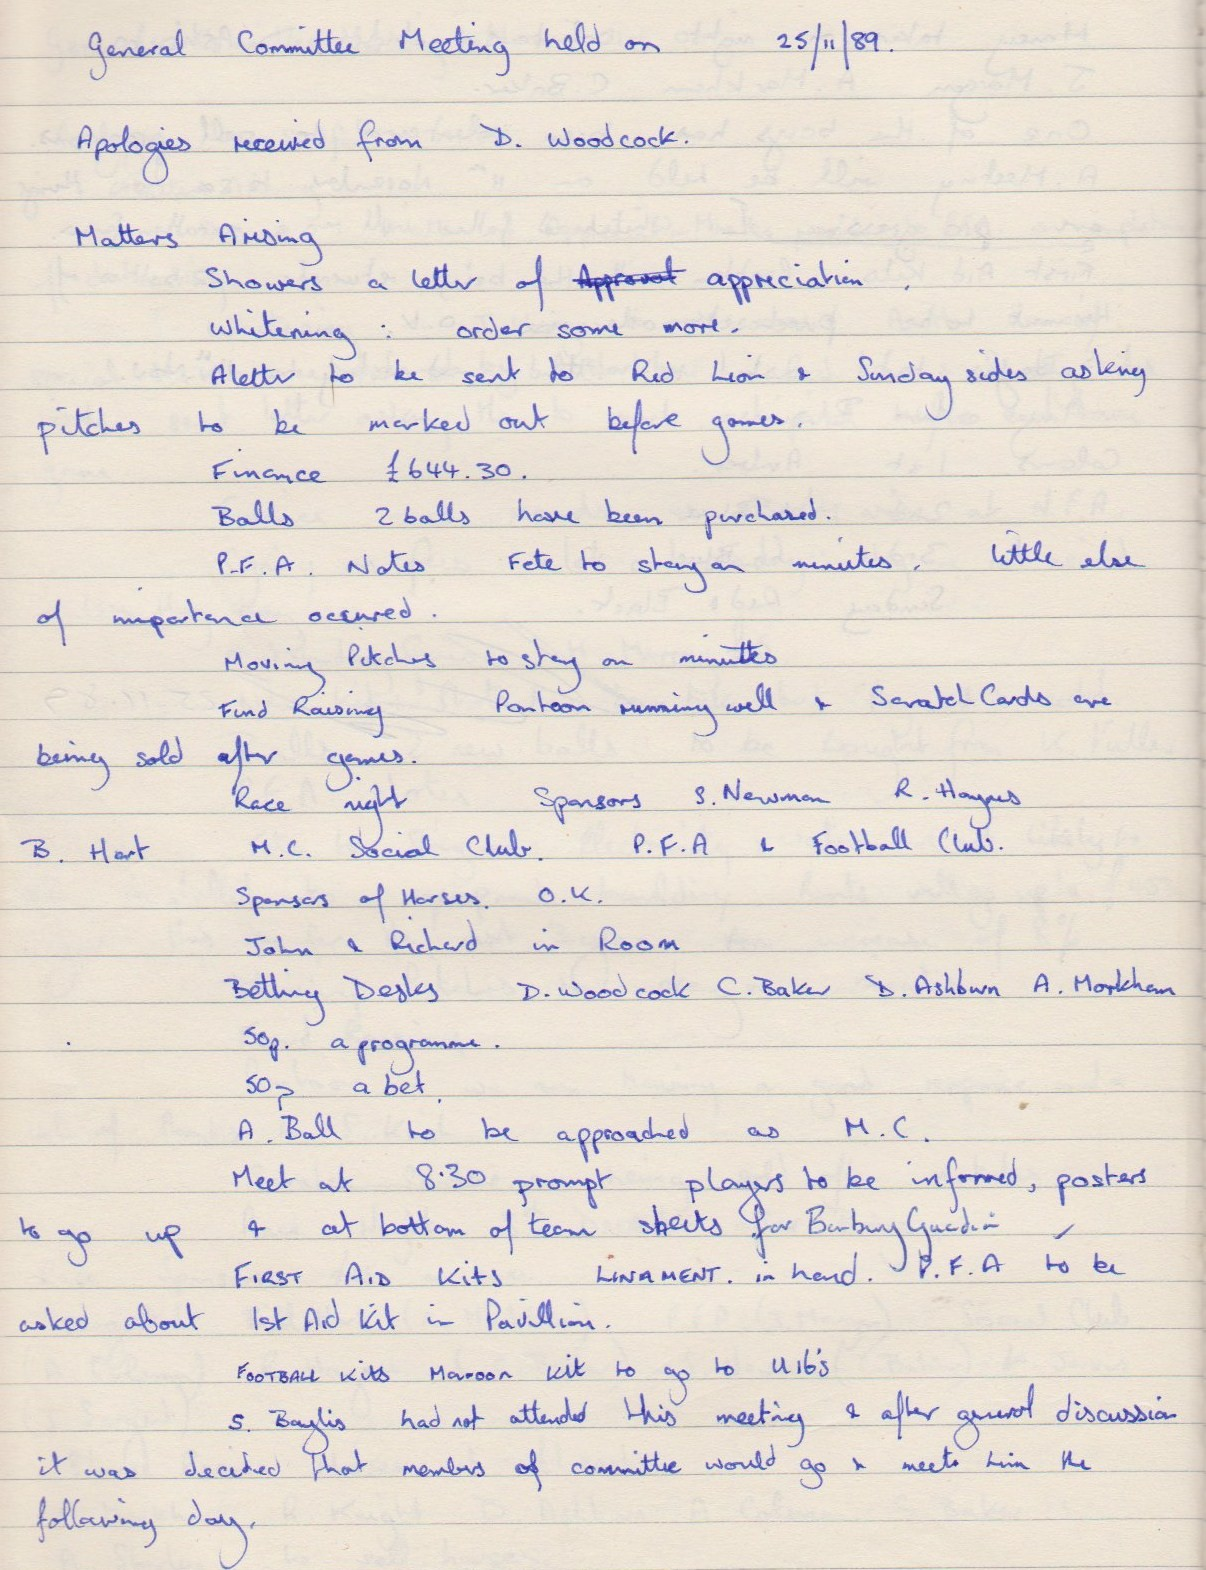 General Committee Meeting held on 25/11/89.
Apologies received from D. Woodcock.
Matters Arising
Showers a letter of Approval appreciation.
Whitening : order some more.
A letter to be sent to Red Lion & Sunday sides asking
pitches to be marked out before games.
Finance £644.30.
Balls 2 balls have been purchased.
P.F.A. Notes Fete to stay on minutes. little else
of importance occured.
Moving Pitches to stay on minuttes
Fund Raising Pontoon running well & Scratch Cards are
being sold after games.
Race night Sponsors S. Newman R. Haynes
B. Hart M.C. Social Club. P.F.A & Football Club.
Sponsors of Horses. O.K.
John & Richard in Room
Betting Desks D. Woodcock C. Baker D. Ashburn A. Markham
50p. a programme.
50p a bet.
A. Ball to be approached as M.C.
Meet at 8.30 prompt players to be informed, posters
to go up & at bottom of team sheets for Banbury Guardian
FIRST AID KITS LINAMENT. in hand. P.F.A to be
asked about 1st Aid Kit in Pavillion.
FOOTBALL KITS Maroon kit to go to U16's
S. Baylis had not attended this meeting & after general discussion
it was decided that members of committee would go & meet him the
following day.